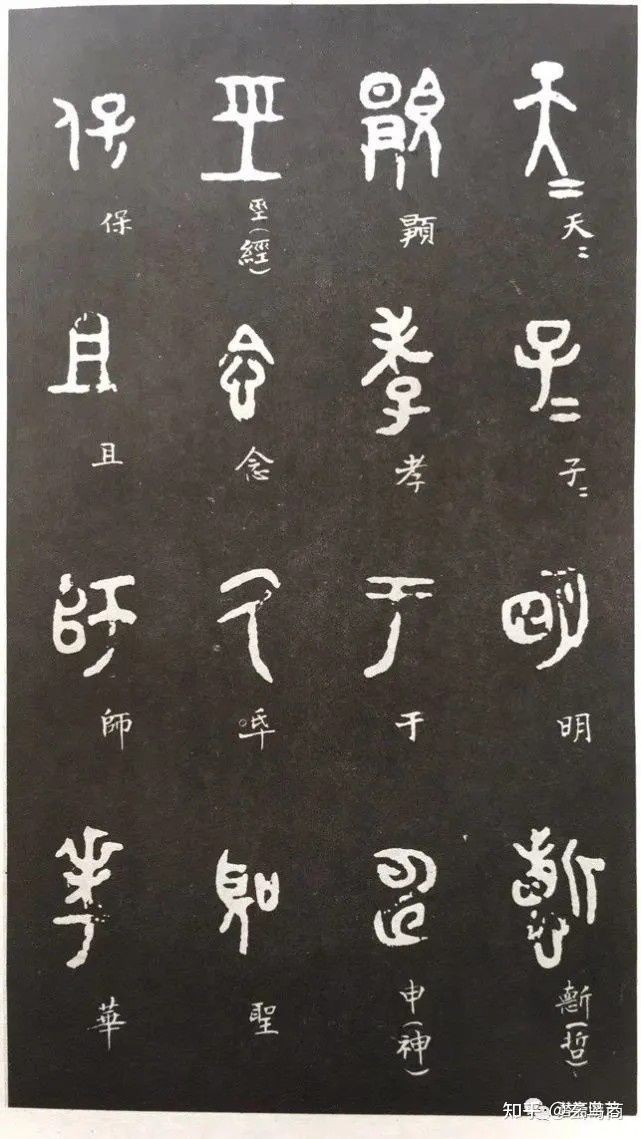 天= 子= 明 悊(哲)
顯 孝 于 申(神)
巠(經) 念 氒 聖
保 且 師 華
知乎